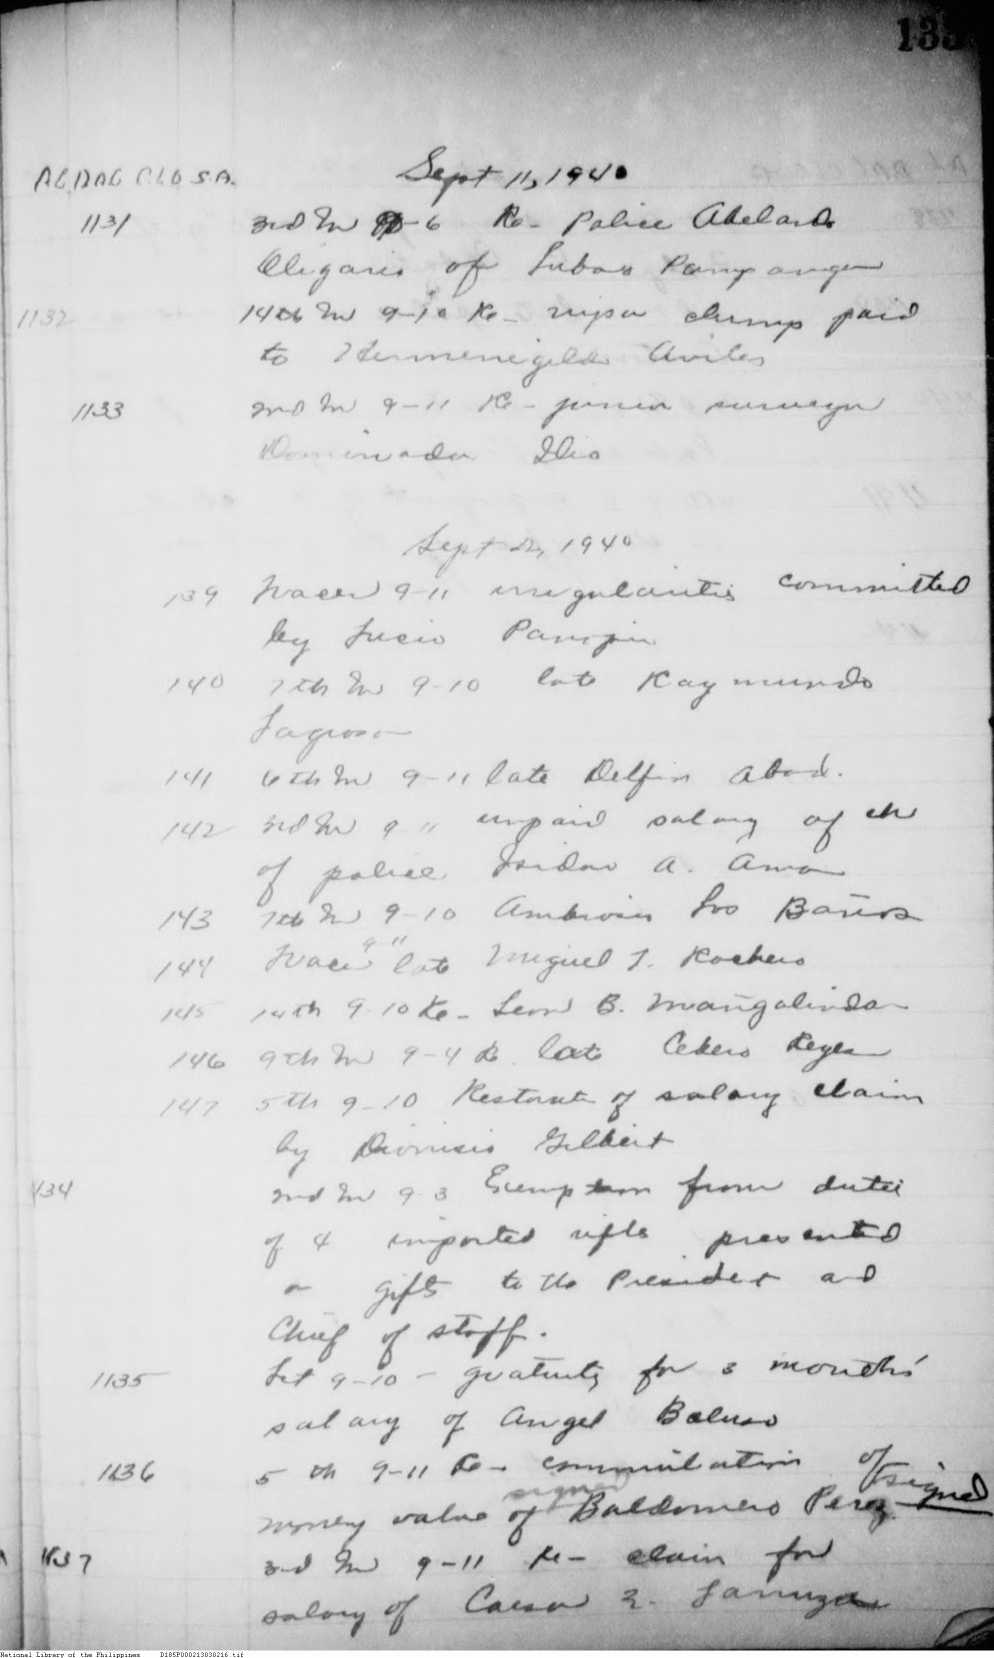 135
Sept 11, 1940
1131 3rd In 9-6 Re- Police Abelardo
Oligario of Lubao Pampanga
1132 14th In 9-10 Re- nipa clump paid
to Hermenegildo Aviles
1133 2nd In 9-11 Re- junior surveyor
Dominador Ilio
Sept 12, 1940
139 9-11 irregularities committed
by Lucio
140 7th In 9-10 late Raymundo
141 6th In 9-11 late Delfin Abad.
142 3rd In 9 11 unpaid salary of ch
of police Isidro A.
143 7th In 9-10 Ambrosio Los Baños
144 9 11 late Miguel T.
145 14th 9-10 Re- Leon B. Mangalindan
146 9th In 9-4 Re late Reyes
147 5th 9-10 of salary claim
by Dionisio Gilbert
134 2nd In 9-3 Exemption from duties
of 4 imported rifles presented
as gifts to the President and
Chief of Staff.
1135 1st 9-10 - gratuity for 3 months'
salary of Angel
1136 5th 9-11 Re- commutation of
signed
money value of Baldomero Perez signed
1137 3rd In 9-11 Re- claim for
salary of
National Library of the Philippines D185P000213838216.tif